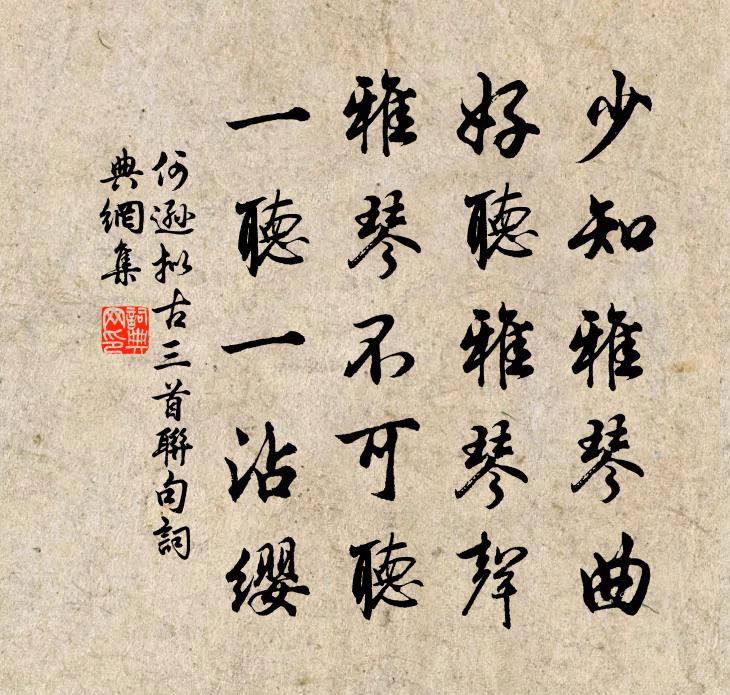 少知雅琴曲
好聽雅琴聲
雅琴不可聽
一聽一沾缨
何遜拟古三首聯句詞
典網集
詞典網印